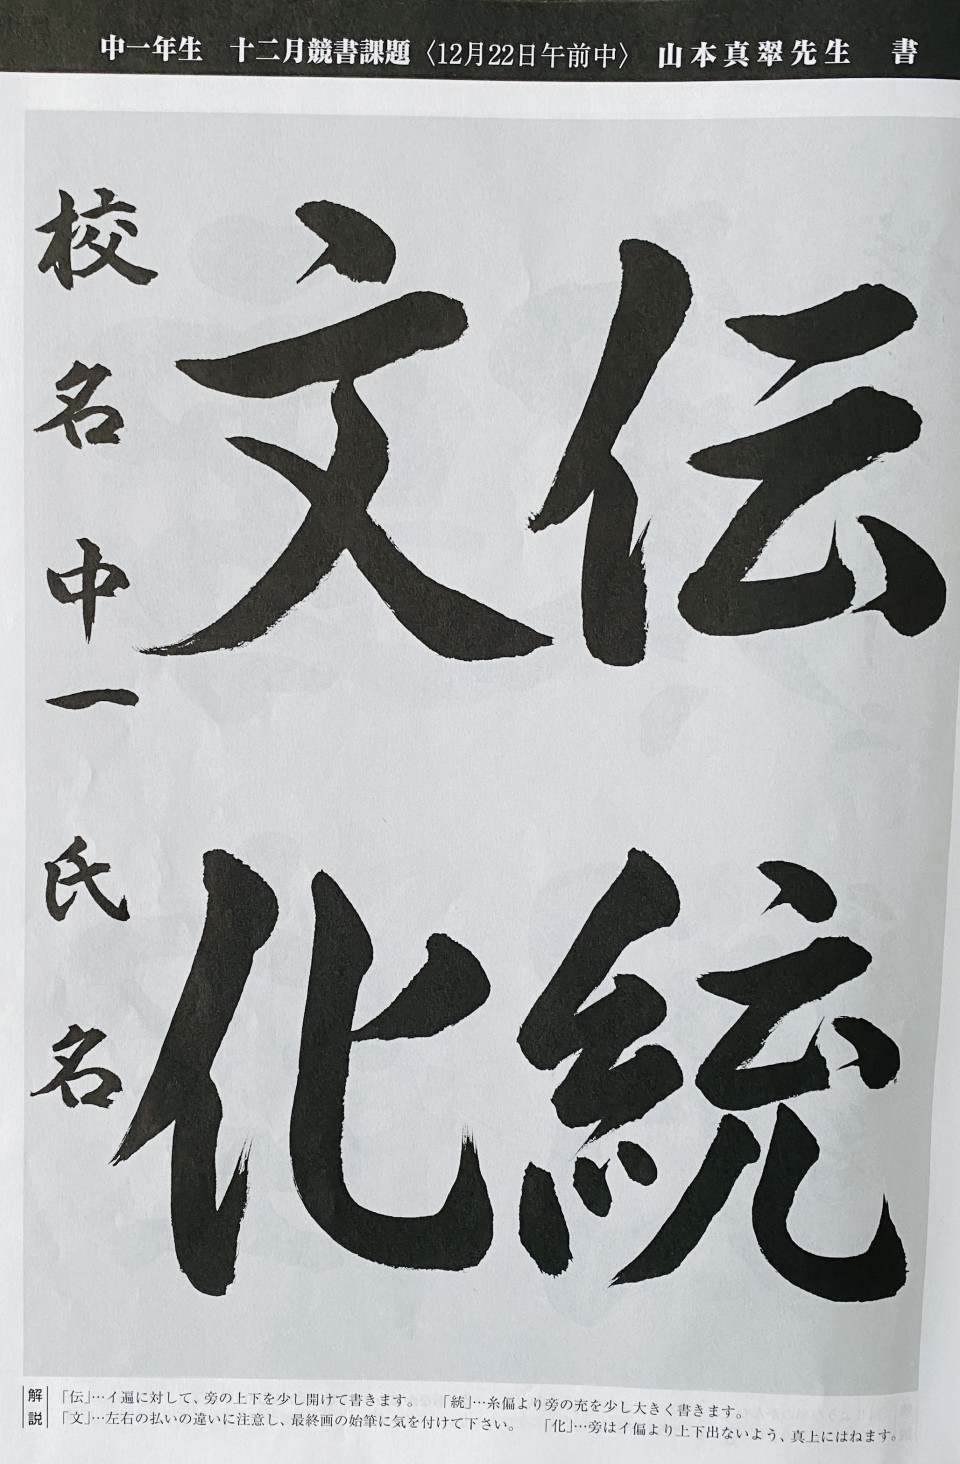 中一年生　十二月競書課題〈12月22日午前中〉　山本真翠先生　書
伝統
文化
校名中一　氏名
解説
「伝」…イ遍に対して、旁の上下を少し開けて書きます。　「統」…糸偏より旁の充を少し大きく書きます。
「文」…左右の払いの違いに注意し、最終画の始筆に気を付けて下さい。　「化」…旁はイ偏より上下出ないよう、真上にはねます。